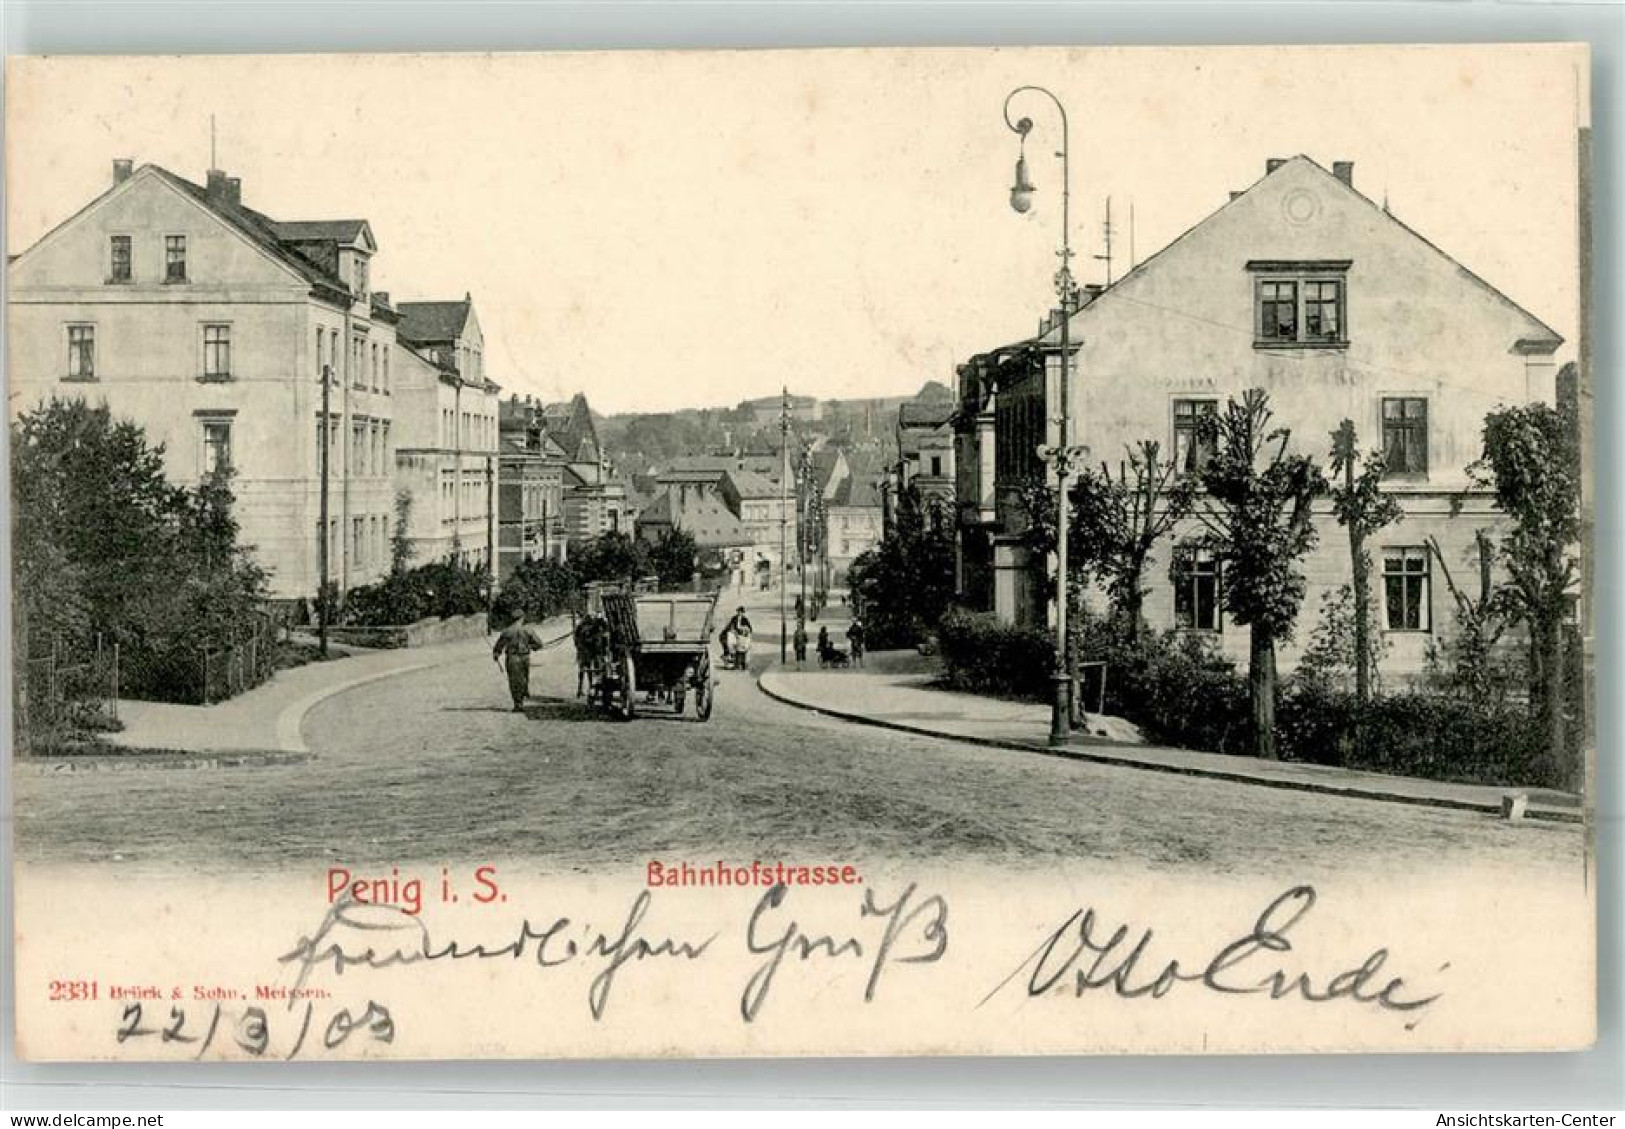 Penig i. S. Bahnhofstrasse.
freundlichen Gruß Otto Ende
2331 Brück & Sohn, Meissen.
22/3/03
delcampe.net
Ansichtskarten-Center